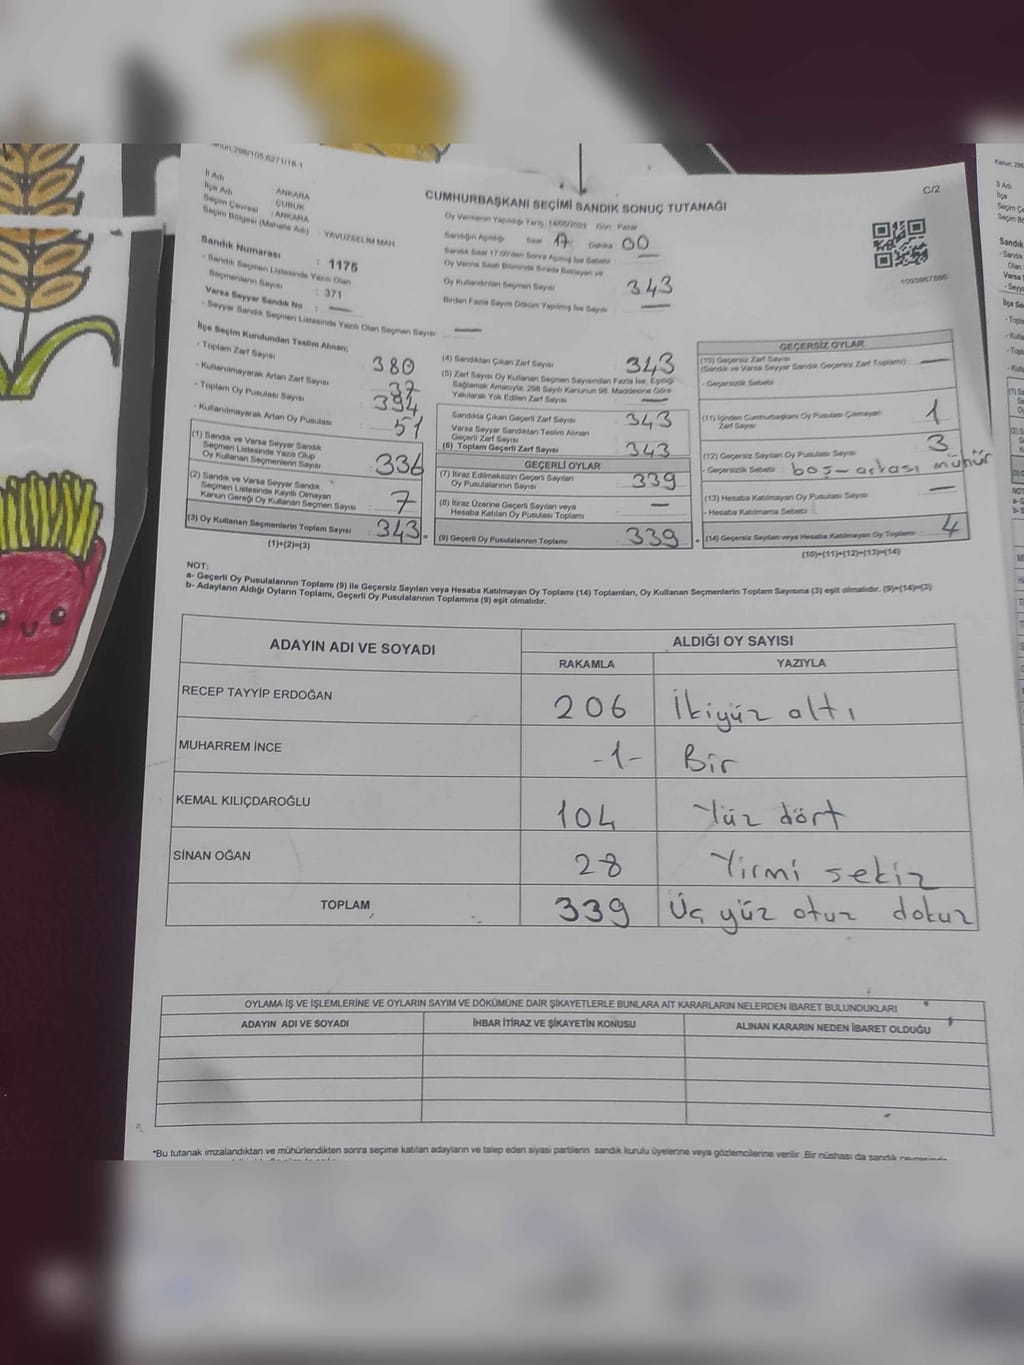 C/2
İl Adı : ANKARA
İlçe Adı : ÇUBUK
Seçim Çevresi : ANKARA
Seçim Bölgesi (Mahalle Adı) : YAVUZSELİM MAH.
CUMHURBAŞKANI SEÇİMİ SANDIK SONUÇ TUTANAĞI
Oy Vermenin Yapıldığı Tarih, 14/05/2023 Gün : Pazar
Sandığın Açıldığı Saat 17 Dakika 00
Sandık Saat 17:00'den Sonra Açılmış İse Sebebi —
Oy Verme Saati Bitiminde Sırada Bekleyen ve
Oy Kullandırılan Seçmen Sayısı 343
Birden Fazla Sayım Döküm Yapılmış İse Sayısı —
Sandık Numarası : 1175
- Sandık Seçmen Listesinde Yazılı Olan
Seçmenlerin Sayısı : 371
Varsa Seyyar Sandık No : —
- Seyyar Sandık Seçmen Listesinde Yazılı Olan Seçmen Sayısı —
İlçe Seçim Kurulundan Teslim Alınan;
- Toplam Zarf Sayısı 380
- Kullanılmayarak Artan Zarf Sayısı 37
- Toplam Oy Pusulası Sayısı 394
- Kullanılmayarak Artan Oy Pusulası 51
(1) Sandık ve Varsa Seyyar Sandık
Seçmen Listesinde Yazılı Olup
Oy Kullanan Seçmenlerin Sayısı 336
(2) Sandık ve Varsa Seyyar Sandık
Seçmen Listesinde Kayıtlı Olmayan
Kanun Gereği Oy Kullanan Seçmen Sayısı 7
(3) Oy Kullanan Seçmenlerin Toplam Sayısı 343
(1)+(2)=(3)
(4) Sandıktan Çıkan Zarf Sayısı 343
(5) Zarf Sayısı Oy Kullanan Seçmen Sayısından Fazla İse, Eşitliği
Sağlamak Amacıyla, 298 Sayılı Kanunun 98. Maddesine Göre
Yakılarak Yok Edilen Zarf Sayısı —
Sandıkta Çıkan Geçerli Zarf Sayısı 343
Varsa Seyyar Sandıktan Teslim Alınan
Geçerli Zarf Sayısı
(6) Toplam Geçerli Zarf Sayısı 343
GEÇERLİ OYLAR
(7) İtiraz Edilmeksizin Geçerli Sayılan
Oy Pusulalarının Sayısı 339
(8) İtiraz Üzerine Geçerli Sayılan veya
Hesaba Katılan Oy Pusulası Toplamı —
(9) Geçerli Oy Pusulalarının Toplamı 339
GEÇERSİZ OYLAR
(10) Geçersiz Zarf Sayısı
(Sandık ve Varsa Seyyar Sandık Geçersiz Zarf Toplamı) —
- Geçersizlik Sebebi
(11) İçinden Cumhurbaşkanı Oy Pusulası Çıkmayan
Zarf Sayısı 1
(12) Geçersiz Sayılan Oy Pusulası Sayısı 3
- Geçersizlik Sebebi boş - arkası mühür
(13) Hesaba Katılmayan Oy Pusulası Sayısı —
- Hesaba Katılmama Sebebi
(14) Geçersiz Sayılan veya Hesaba Katılmayan Oy Toplamı 4
(10)+(11)+(12)+(13)=(14)
NOT:
a- Geçerli Oy Pusulalarının Toplamı (9) ile Geçersiz Sayılan veya Hesaba Katılmayan Oy Toplamı (14) Toplamları, Oy Kullanan Seçmenlerin Toplam Sayısına (3) eşit olmalıdır. (9)+(14)=(3)
b- Adayların Aldığı Oyların Toplamı, Geçerli Oy Pusulalarının Toplamına (9) eşit olmalıdır.
ADAYIN ADI VE SOYADI ALDIĞI OY SAYISI
RAKAMLA YAZIYLA
RECEP TAYYİP ERDOĞAN 206 İkiyüz altı
MUHARREM İNCE -1- Bir
KEMAL KILIÇDAROĞLU 104 Yüz dört
SİNAN OĞAN 28 Yirmi sekiz
TOPLAM 339 Üç yüz otuz dokuz
OYLAMA İŞ VE İŞLEMLERİNE VE OYLARIN SAYIM VE DÖKÜMÜNE DAİR ŞİKAYETLERLE BUNLARA AİT KARARLARIN NELERDEN İBARET BULUNDUKLARI
ADAYIN ADI VE SOYADI İHBAR İTİRAZ VE ŞİKAYETİN KONUSU ALINAN KARARIN NEDEN İBARET OLDUĞU
*Bu tutanak imzalandıktan ve mühürlendikten sonra seçime katılan adayların ve talep eden siyasi partilerin sandık kurulu üyelerine veya gözlemcilerine verilir. Bir nüshası da sandık